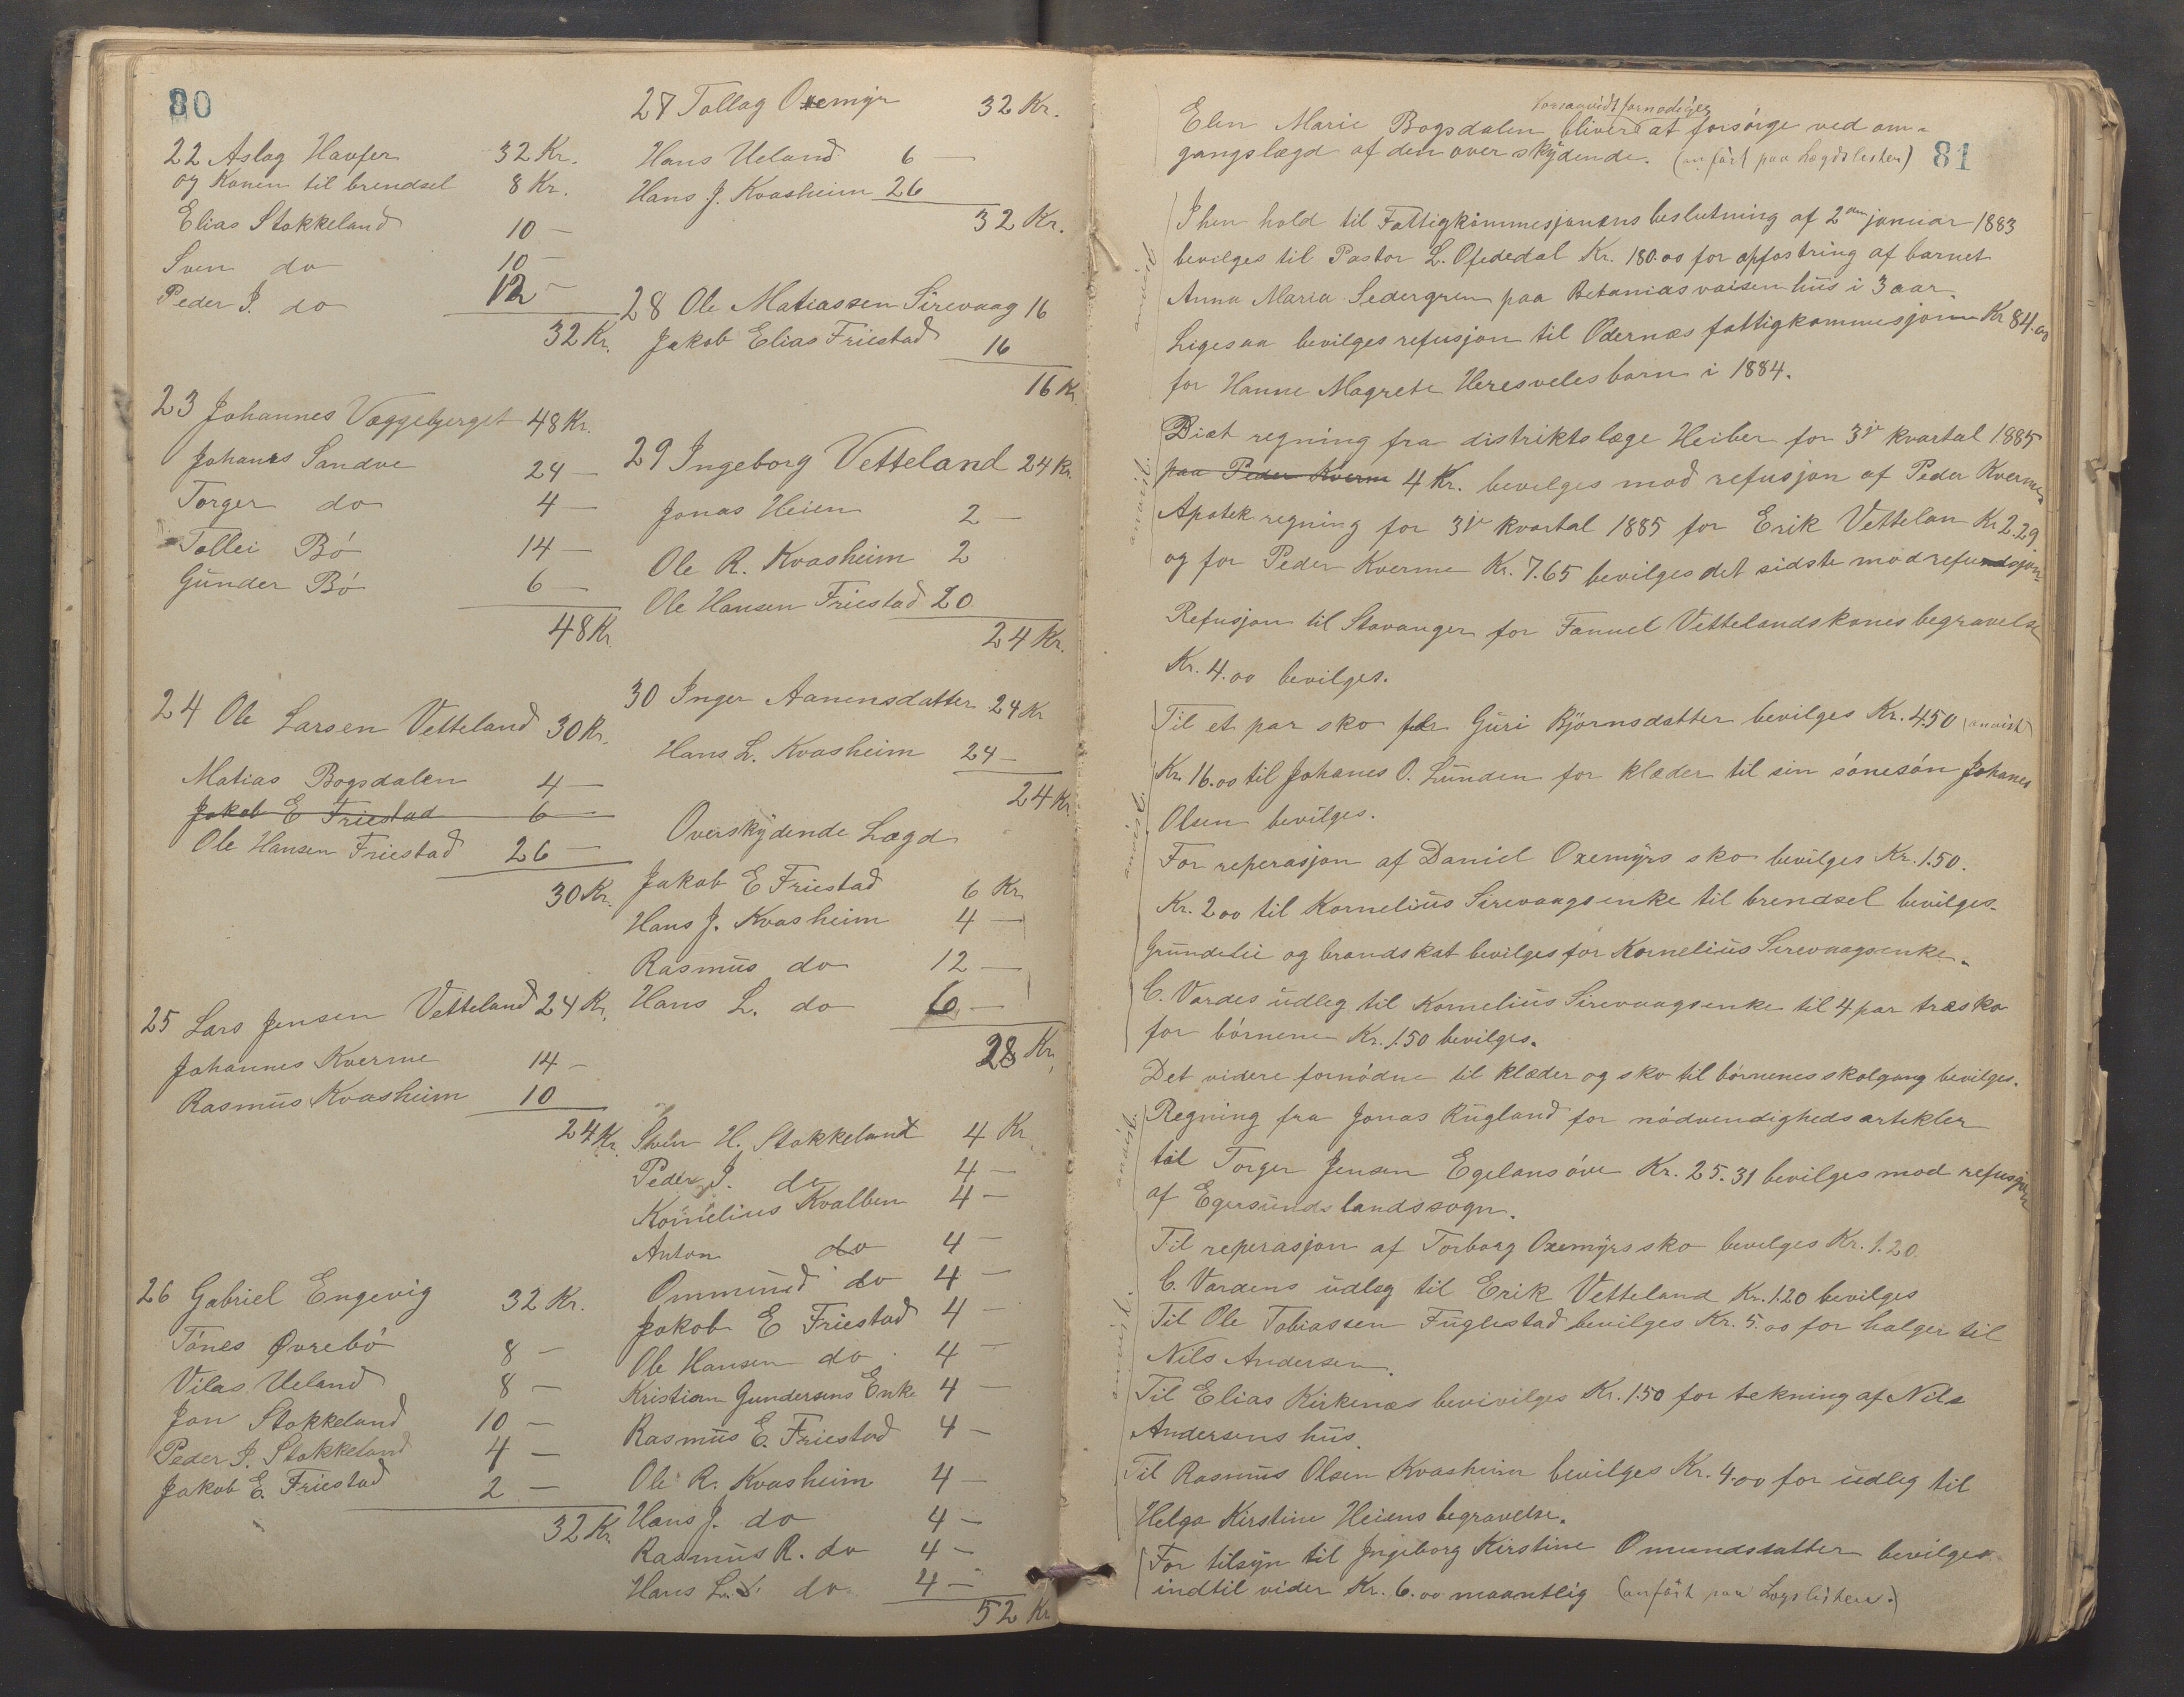 80
22 Aslag Havfer 32 Kr.
og Konen til brendsel 8 Kr.
Elias Stokkeland 10 —
Sven do 10 —
Peder J. do 12 —
32 Kr.
23 Johannes Væggebjerget 48 Kr.
Johanes Sandve 24 —
Torger do 4 —
Tollei Bó 14 —
Gunder Bó 6 —
48 Kr.
24 Ole Larsen Vetteland 30 Kr.
Matias Bogsdalen 4 —
Jakob E Friestad 6 —
Ole Hansen Friestad 26 —
30 Kr.
25 Lars Jensen Vetteland 24 Kr.
Johannes Kverme 14 —
Rasmus Kvasheim 10
24 Kr.
26 Gabriel Engevig 32 Kr.
Tónes Øvrebó 8 —
Vilas Ueland 8 —
Jon Stokkeland 10 —
Peder J. Stokkeland 4 —
Jakob E. Friestad 2 —
32 Kr.
27 Tollag Oxemyr 32 Kr.
Hans Ueland 6 —
Hans J. Kvasheim 26
32 Kr.
28 Ole Matiassen Sirevaag 16
Jakob Elias Friestad 16
16 Kr
29 Ingeborg Vetteland 24 Kr.
Jonas Heien 2 —
Ole R. Kvasheim 2
Ole Hansen Friestad 20
24 Kr.
30 Inger Aanensdatter 24 Kr
Hans L. Kvasheim 24 —
24 Kr
Overskydende Lægd
Jakob E Friestad 6 Kr
Hans J. Kvasheim 4 —
Rasmus do 12 —
Hans L. do 6 —
28 Kr,
Svén H. Stokkeland 4 Kr.
Peder J. do 4 —
Kornelius Kvalben 4 —
Anton do 4 —
Ommund do 4 —
Jakob E Friestad 4 —
Ole Hansen do 4 —
Kristian Gundersens Enke 4 —
Rasmus E. Friestad 4 —
Ole R. Kvasheim 4 —
Hans J. do 4 —
Rasmus R. do 4 —
Hans L. do 4 —
52 Kr
81
forsaavidt fornödiges
Elen Marie Bogsdalen bliver at forsórge ved om-
gangslægd af den overskydende. (anfört paa Lægdslisten)
I hen hold til Fattigkommesjonens beslutning af 2den januar 1883
bevilges til Pastor L. Oftedal Kr. 180.00 for opfostring af barnet
Anna Maria Sedergren paa Betanias vaisenhus i 3 aar.
Ligesaa bevilges refusjon til Odernæs fattigkommesjon Kr 84.00
for Hanne Magrete Heresveles barn i 1884.
anvist.
Diæt regning fra distriktslæge Heiber for 3je kvartal 1885
paa Peder Kverme 4 Kr. bevilges mod refusjon af Peder Kverme
Apotek regning for 3je kvartal 1885 for Erik Vettelan Kr 2.29
og for Peder Kverme Kr. 7.65 bevilges det sidste mod refundsjon
anvist.
Refusjon til Stavanger for Fanuel Vettelandskones begravelse
Kr. 4.00 bevilges.
Til et par sko for Guri Bjórnsdatter bevilges Kr. 4.50 (anvist)
Kr. 16.00 til Johanes O. Lunden for klæder til sin sónesón Johanes
Olsen bevilges.
For reperasjon af Daniel Oxemyrs sko bevilges Kr. 1.50.
Kr. 2.00 til Kornelius Sirevaagsenke til brendsel bevilges.
Grundleie og brandskat bevilges for Kornelius Sirevaagsenke.
C. Vardes udleg til Kornelius Sirevaagsenke til 4 par træsko
for bórnene Kr. 1.50 bevilges.
anvist.
Det videre fornódne til klæder og sko til bórnenes skolgang bevilges.
Regning fra Jonas Rugland for nódvendighedsartekler
til Torger Jensen Egelansóve Kr. 25.31 bevilges mod refusjon
af Egersunds landssogn.
anvist.
Til reperasjon af Torborg Oxemyrs sko bevilges Kr. 1.20.
C. Vardens udleg til Erik Vetteland Kr. 1.20 bevilges
Til Ole Tobiassen Fuglestad bevilges Kr. 5.00 for halger til
Nils Andersen.
Til Elias Kirkenæs bevivilges Kr. 1.50 for tekning af Nils
Andersens hus.
Til Rasmus Olsen Kvasheim bevilges Kr. 4.00 for udleg til
Helga Kirstine Heiens begravelse.
anvist.
For tilsyn til Ingeborg Kirstine Omundsdatter bevilges
indtil vider Kr. 6.00 maantlig (anfört paa Legslisten.)